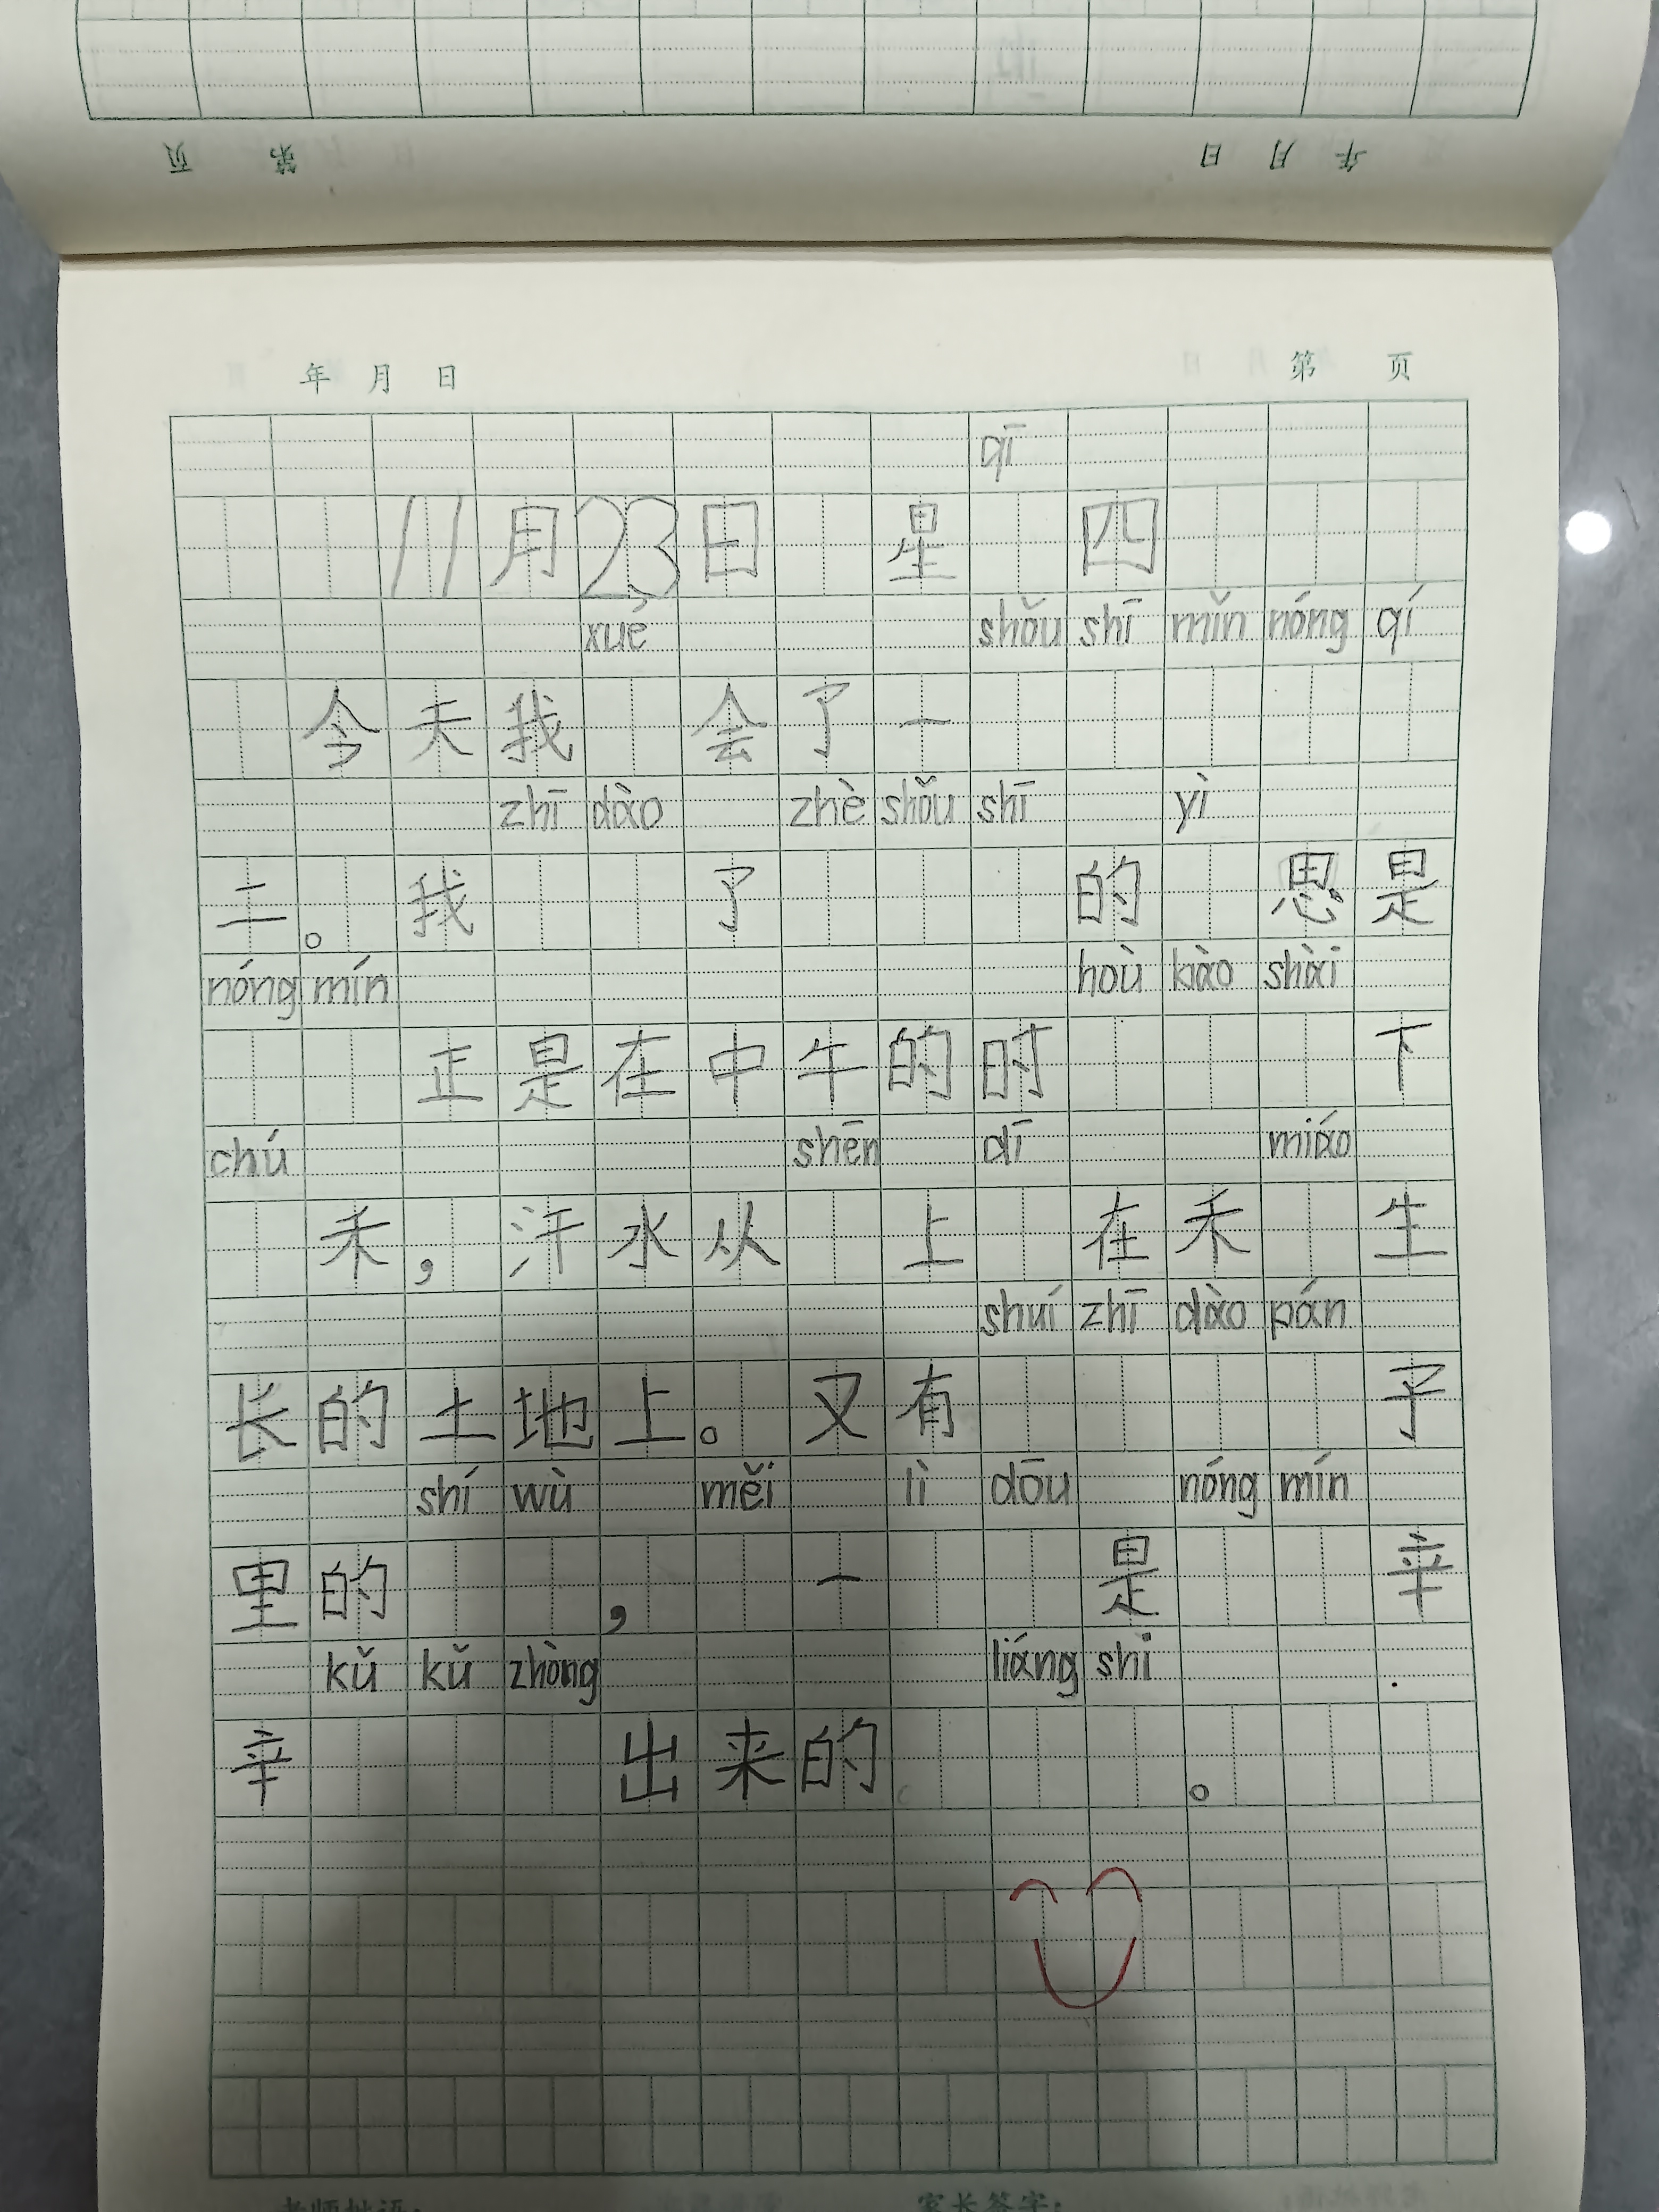 页 第 日 月 年
年 月 日 第 页
qī
11月23日 星 四
xué shǒu shī mǐn nóng qí
今天我 会了一
zhī dào zhè shǒu shī yì
二。我 了 的 思是
nóng mín hoù kào shài
正是在中午的时 下
chú shēn dī miáo
禾,汗水从 上 在禾 生
shuí zhī dào pán
长的土地上。又有 子
shí wù měi lì dōu nóng mín
里的 , 一 是 辛
kǔ kǔ zhòng liáng shi
辛 出来的 。
老师批语: 家长签字: